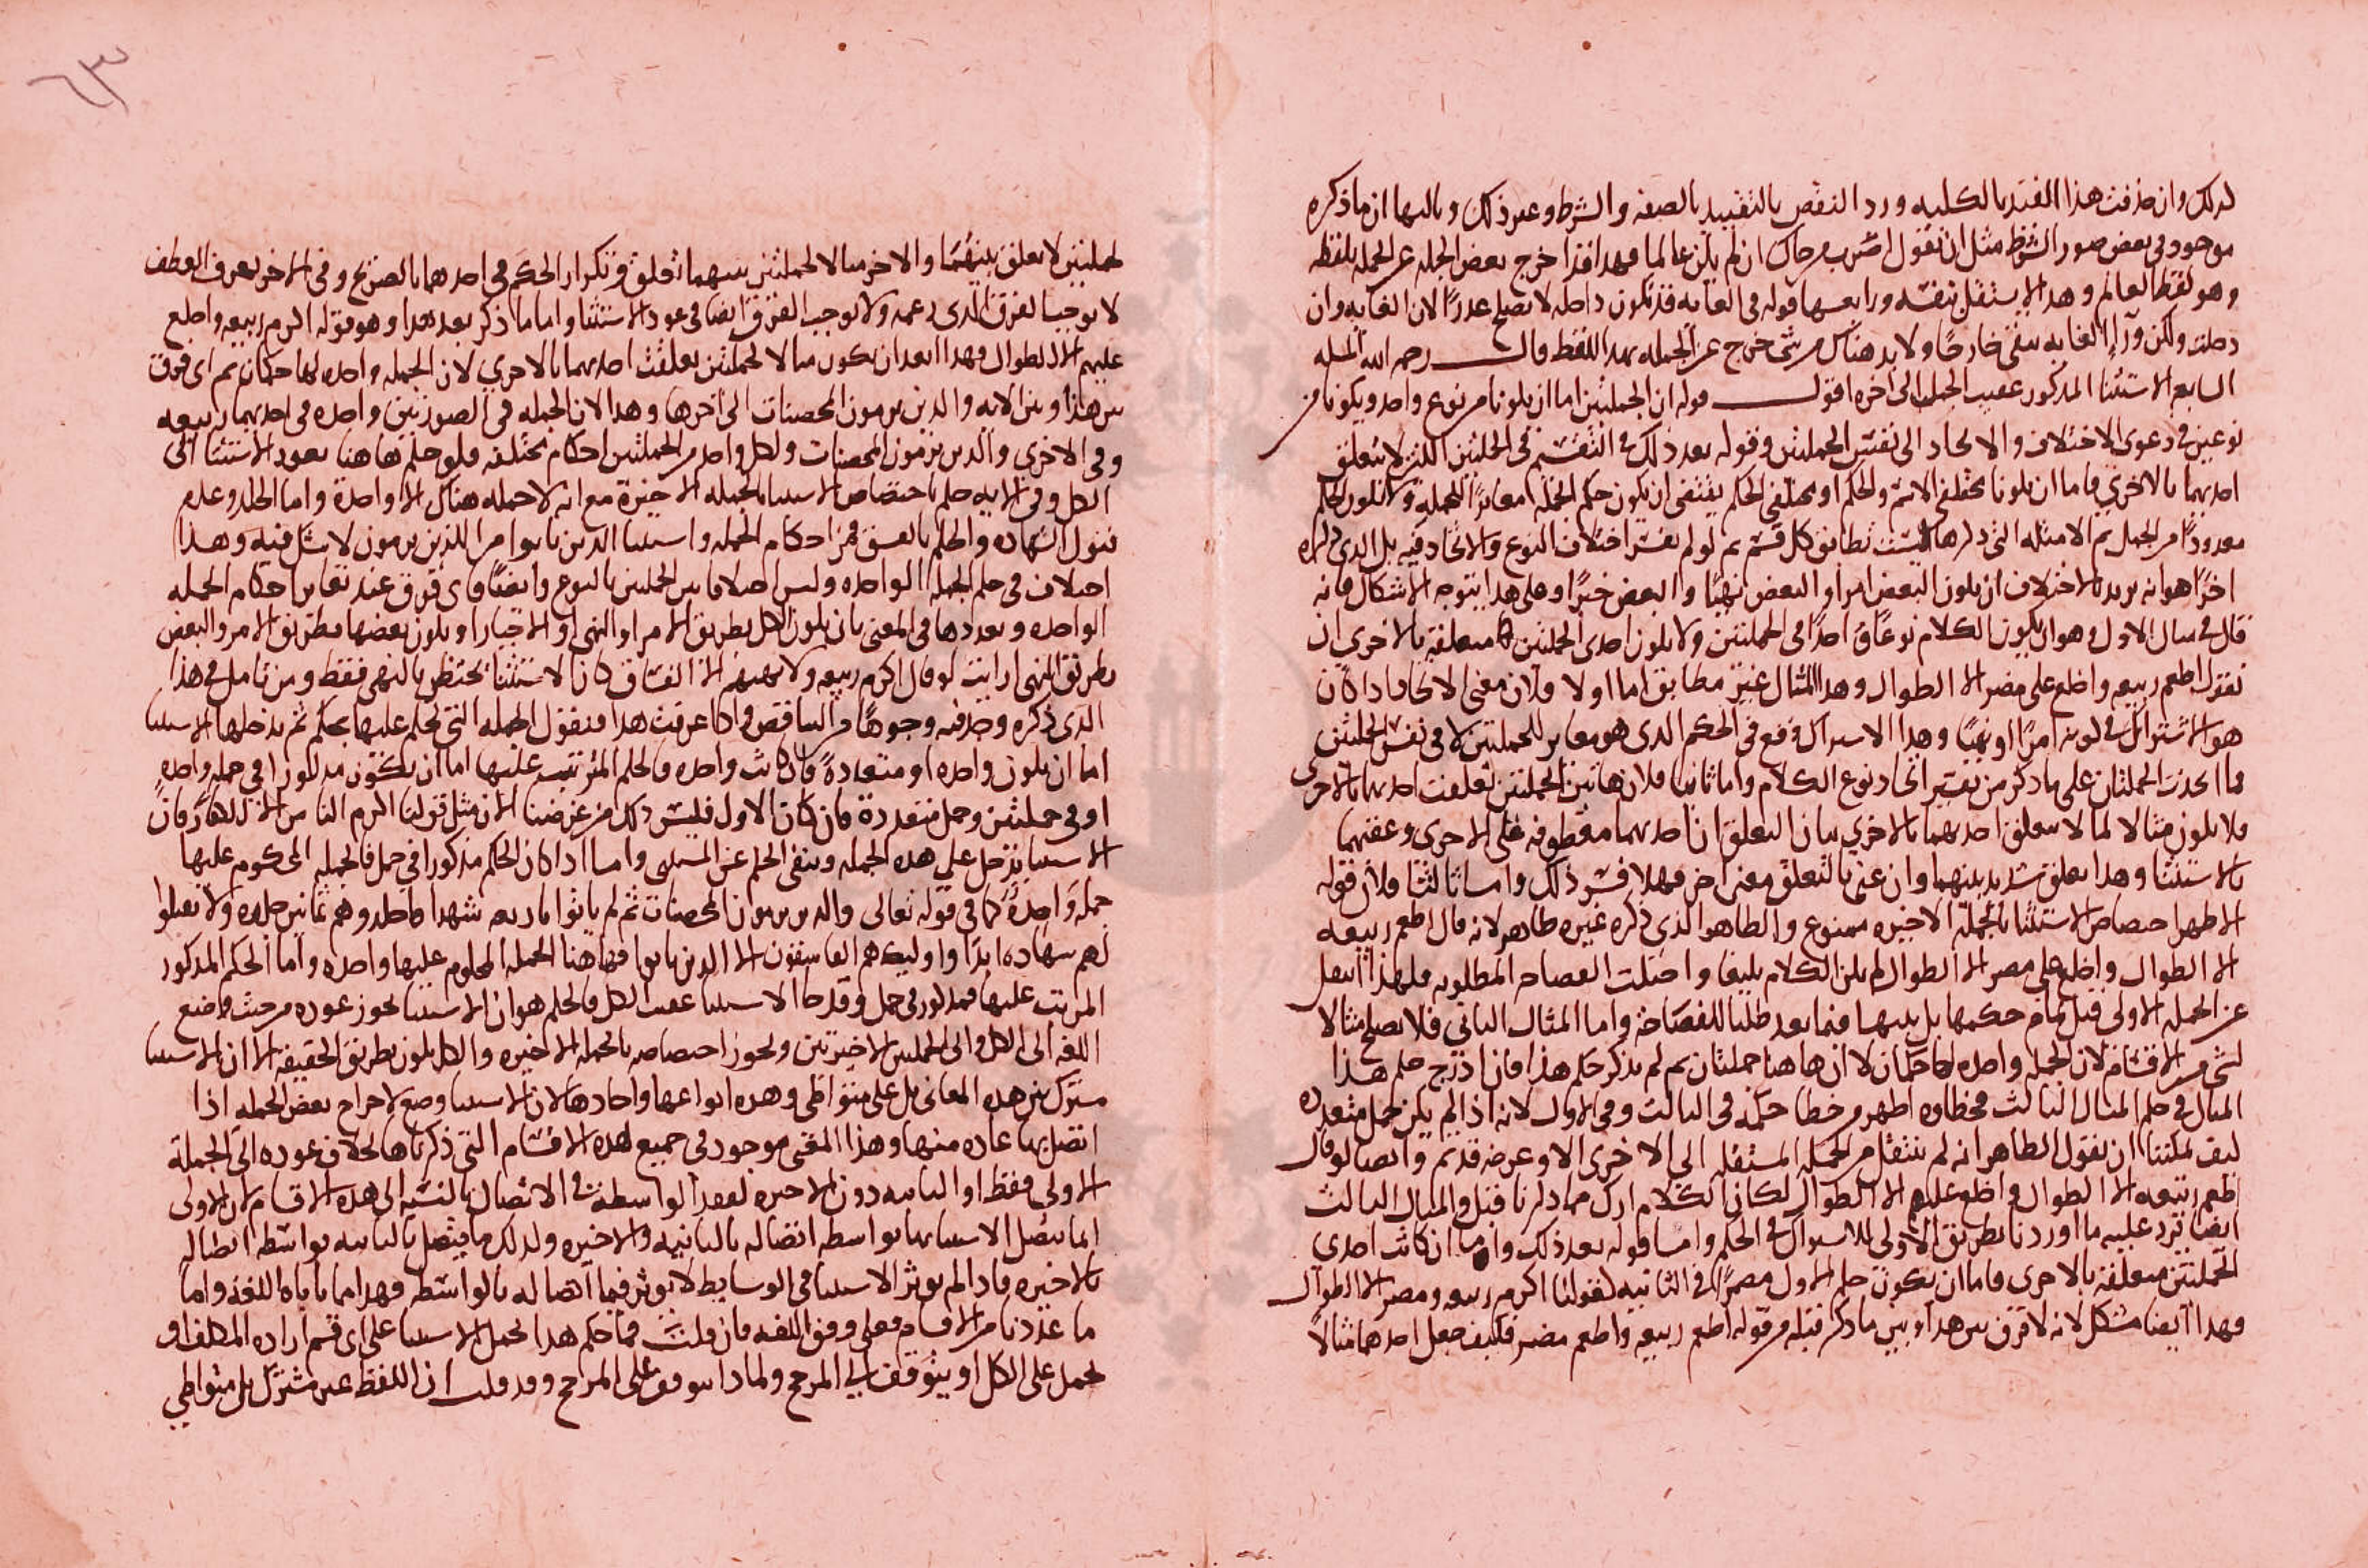 لذلك وان حذفت هذا القيد بالكليه ورد النقص بالتقييد بالصفه والشرط وغير ذلك وثالثها ان ما ذكره
موجود في بعض صور الشرط مثل ان تقول اضرب من جاك ان لم يكن عالما فهذا قد اخرج بعض الجمله عن الجمله بلفظه
وهو لفظ العالم وهذا لا يستقل بنفسه ورابعها قوله في الغايه قد تكون داخله لا يصلح عذرا لان الغايه وان
دخلت ولكن ورا الغايه يبقى خارجا ولا بد هناك من شي خرج عن الجمله بهذا اللفظ قال رحمه الله المسله
السابعه الاستثنا المذكور عقيب الجمل الى اخره اقول قوله ان الجملتين اما ان يكونا من نوع واحد ويكونا من
نوعين في دعوى الاختلاف والاتحاد الى نفس الجملتين وقوله بعد ذلك في التقسيم في الجملتين اللتين لا يتعلق
احديهما بالاخرى فاما ان يكونا مختلفي الاسم والحكم او مختلفي الحكم يقتضي ان يكون حكم الجمله مغايرا للجمله ولا يكون الحكم
معدودا من الجمل ثم الامثله التي ذكرها ليست تطابق كل قسم ثم لو لم يفسر اختلاف النوع والاتحاد فيه بل الذي ذكره
اخرا هو انه يريد بالاختلاف ان يكون البعض امرا والبعض نهيا والبعض خبرا وعلى هذا يتوجه الاشكال فانه
قال في مثال الاول وهو ان يكون الكلام نوعا واحدا في الجملتين ولا يكون احدى الجملتين متعلقة بالاخرى ان
تقول اطعم ربيعه واخلع على مضر الا الطوال وهذا المثال غير مطابق اما اولا فلان معنى الاتحاد اذا كان
هو الاشتراك في كونه امرا او نهيا وهذا الاشتراك وقع في الحكم الذي هو مغاير للجملتين لا في نفس الجملتين
فما اتحدت الجملتان على ما ذكر من تفسير اتحاد نوع الكلام واما ثانيا فلان هاتين الجملتين تعلقت احديهما بالاخرى
فلا يكون مثالا لما لا يتعلق احديهما بالاخرى بيان التعلق ان احديهما معطوفه على الاخرى وعقبهما
بالاستثنا وهذا تعلق شديد بينهما وان عني بالتعلق معنى اخر فهلا فسر ذلك واما ثالثا فلان قوله
الاظهر اختصاص الاستثنا بالجملة الاخيره ممنوع والظاهر الذي ذكره غيره ظاهر لانه قال اطعم ربيعه
الا الطوال واخلع على مضر الا الطوال لم يكن الكلام بليغا واختلت الفصاحه المطلوبه فلهذا انتقل
عن الجمله الاولى قبل تمام حكمها بل بينها فيما بعد طلبا للفصاحة واما المثال الثاني فلا يصلح مثالا
لشي من الاقسام لان الجمله واحده لها حكمان لا ان هاهنا جملتان ثم لم يذكر حكم هذا فان ادرج حكم هذا
المثال في حكم المثال الثالث فخطاوه اظهر من خطا حكمه في الثالث وفي الاول لانه اذا لم يكن جمل متعدده
كيف يمكننا ان نقول الظاهر انه لم ينتقل من الجملة المستقله الى الاخرى الا وغرضه قد تم وايضا لو قال
اطعم ربيعه الا الطوال واخلع عليهم الا الطوال لكان الكلام ارك مما ذكرنا قبل والمثال الثالث
ايضا يرد عليه ما اوردنا بطريق الاولى للاشتراك في الحكم واما قوله بعد ذلك واما ان كانت احدى
الجملتين متعلقة بالاخرى فاما ان يكون حكم الاول مضمرا في الثانيه كقولنا اكرم ربيعه ومضر الا الطوال
فهذا ايضا مشكل لانه لا فرق بين هذا وبين ما ذكر قبله من قوله اطعم ربيعه واطعم مضر فكيف جعل احدهما مثالا
لجملتين لا تعلق بينهما والاخر مثالا لجملتين بينهما تعلق وتكرار الحكم في احدهما بالصريح وفي الاخر بحرف العطف
لا يوجب الفرق الذي زعمه ولا يوجب الفرق ايضا في عود الاستثنا واما ما ذكر بعد هذا وهو قوله اكرم ربيعه واخلع
عليهم الا الطوال فهذا ابعد ان يكون مثالا لجملتين تعلقت احديهما بالاخرى لان الجمله واحده لها حكمان ثم اي فرق
بين هذا وبين الايه والذين يرمون المحصنات الى اخرها وهذا لان الجمله في الصورتين واحده في احديهما ربيعه
وفي الاخرى والذين يرمون المحصنات ولكل واحد من الجملتين احكام مختلفه فلو حكم هاهنا بعود الاستثنا الى
الكل وفي الايه حكم باختصاص الاستثنا بالجمله الاخيرة مع انه لا جمله هناك الا واحدة واما الجلد وعدم
قبول الشهاده والحكم بالفسق فمن احكام الجمله واستثنا الذين تابوا من الذين يرمون لا شك فيه وهذا
اختلاف في حكم الجمله الواحده وليس اختلافا بين الجملتين بالنوع وايضا فاي فرق عند تغاير احكام الجمله
الواحده وتعددها في المعنى بان يكون الكل بطريق الامر او النهي او الاخبار او يكون بعضها بطريق الامر والبعض
بطريق النهي ارايت لو قال اكرم ربيعه ولا تهنهم الا الفساق كان الاستثنا يختص بالنهي فقط ومن تامل في هذا
الذي ذكره وجد فيه وجوها من التناقض واذا عرفت هذا فنقول الجمله التي يحكم عليها بحكم ثم يدخلها الاستثنا
اما ان يكون واحده او متعددة فان كانت واحده فالحكم المرتب عليها اما ان يكون مذكورا في جمله واحده
او في جملتين وجمل متعددة فان كان الاول فليس ذلك من غرضنا الان مثل قولنا اكرم الناس الا الكفار فان
الاستثنا يدخل على هذه الجمله وينفي الحكم عن المستثنى واما اذا كان الحكم مذكورا في جمل فالجمله المحكوم عليها
جمله واحدة كما في قوله تعالى والذين يرمون المحصنات ثم لم ياتوا باربعه شهدا فاجلدوهم ثمانين جلده ولا تقبلوا
لهم شهاده ابدا واوليك هم الفاسقون الا الذين تابوا فهاهنا الجمله المحكوم عليها واحده واما الحكم المذكور
المرتب عليها فمذكور في جمل وقد جا الاستثنا عقيب الكل فالحكم هو ان الاستثنا يجوز عوده من حيث وضع
اللغه الى الكل والى الجملتين الاخيرتين ويجوز اختصاصه بالجمله الاخيره والكل يكون بطريق الحقيقه لا ان الاستثنا
مشترك بين هذه المعاني بل على متواطي وهذه انواعها واحادها لان الاستثنا وضع لاخراج بعض الجمله اذا
اتصل بها عاده منها وهذا المعنى موجود في جميع هذه الاقسام التي ذكرناها بخلاف عوده الى الجملة
الاولى فقط او الثانيه دون الاخيره لفقد الواسطة في الاتصال بالنسبه الى هذه الاقسام لان الاولى
انما يتصل الاستثنا بها بواسطه اتصاله بالثانيه والاخيره وكذلك ما يتصل بالثانيه بواسطه اتصاله
بالاخيره فاذا لم يوثر الاستثنا في الوسايط لا يوثر فيما اتصاله بالواسطه فهذا مما ياباه اللغة واما
ما عددنا من الاقسام فعلى وفق اللغه فان قلت فما حكم هذا يحمل الاستثنا على اي قسم اراده المكلف او
يحمل على الكل او يتوقف الى المرجح ولماذا يتوقف على المرجح وقد قلت ان اللفظ غير مشترك بل متواطي